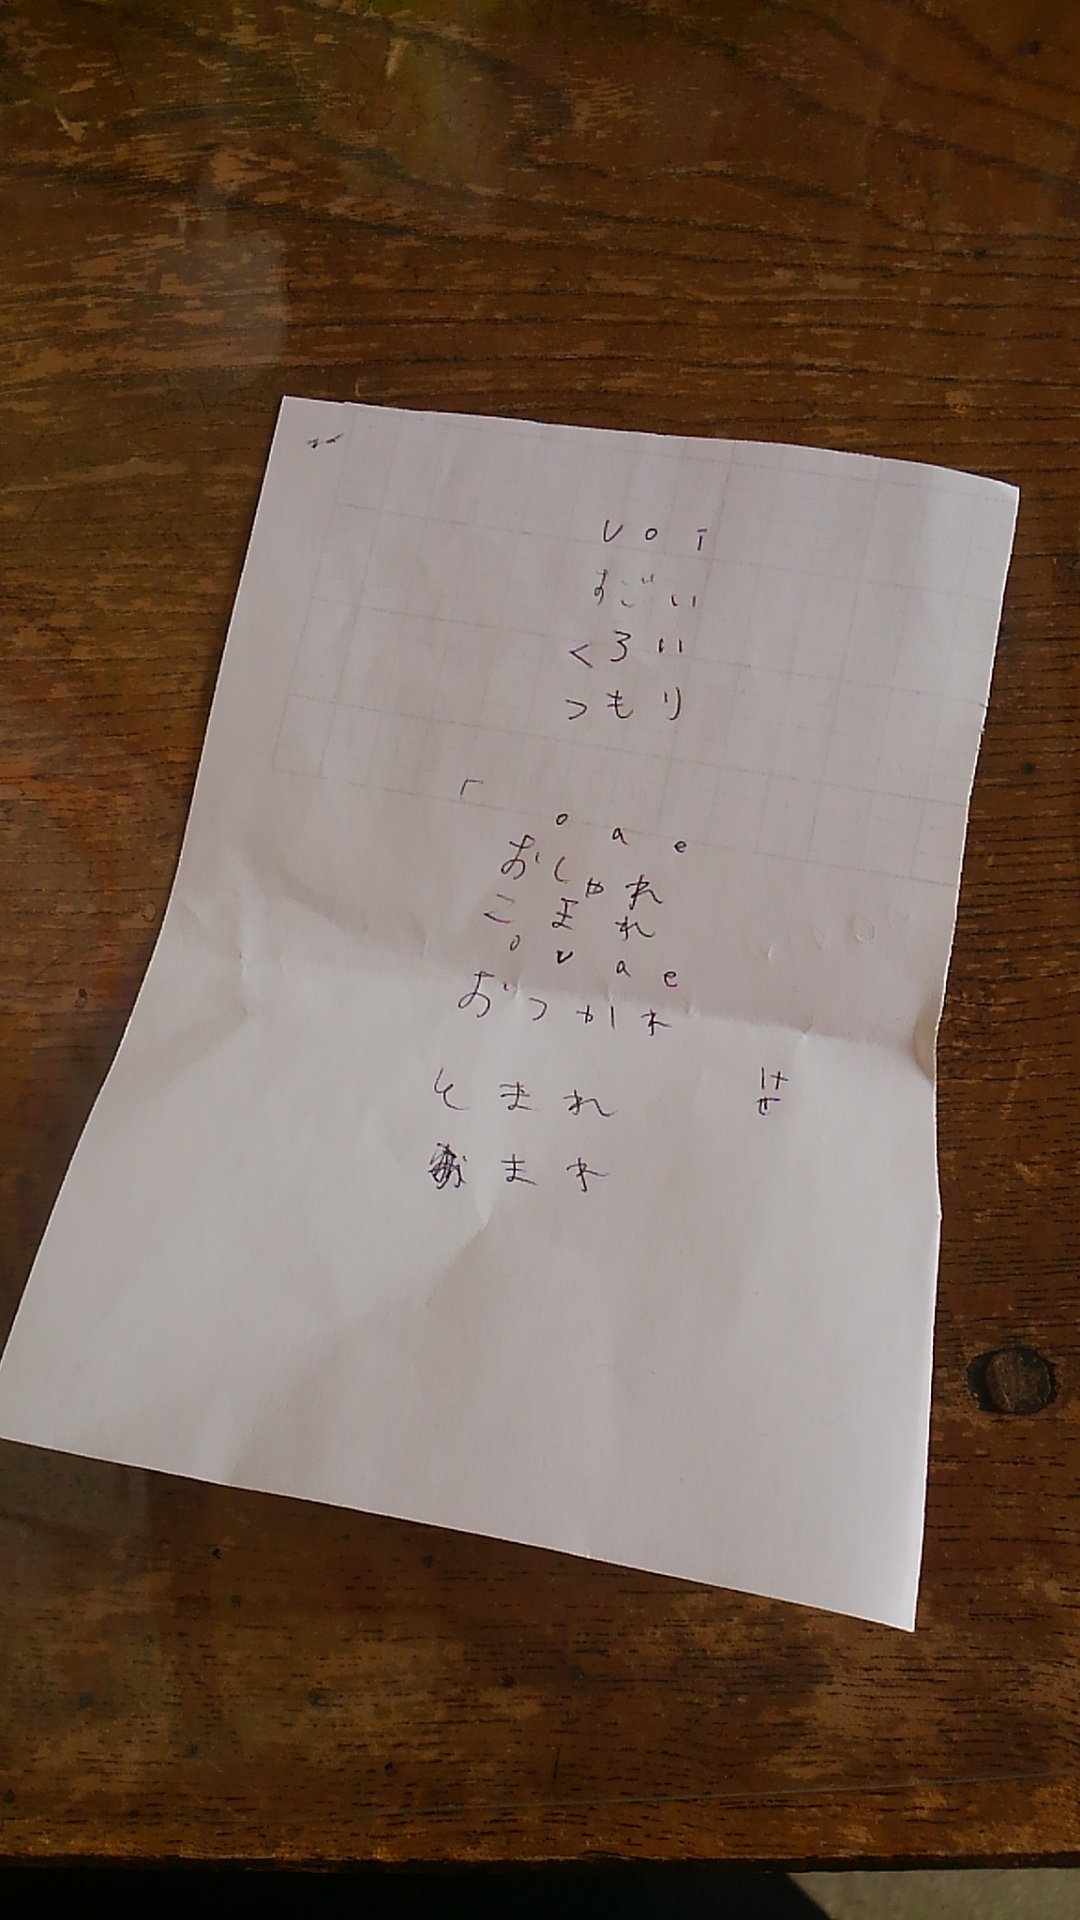 U O I
すごい
くろい
つもり
o a e
おしゃれ
こまれ
o u a e
おつかれ
とまれ
け
せ
まれ